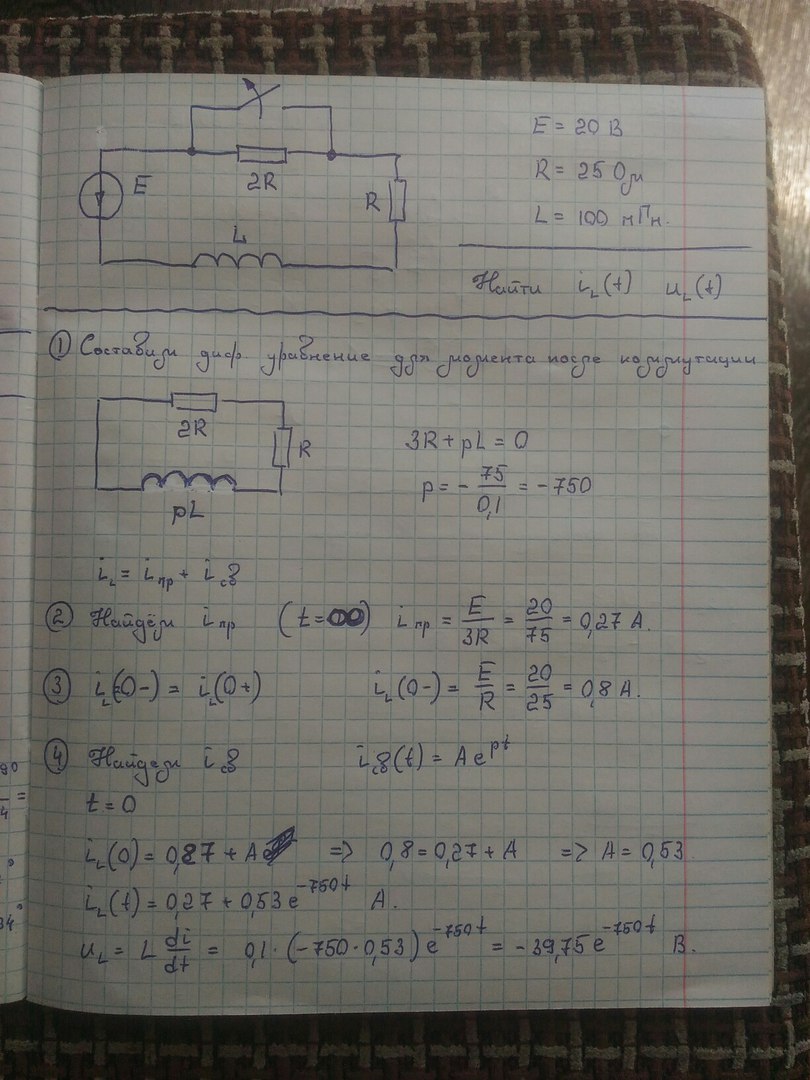 E = 20 В
E
2R
R = 25 Ом
R
L
L = 100 мГн.
Найти i_L(t) u_L(t)
① Составим диф уравнение для момента после коммутации
2R
R
3R + pL = 0
p = - 75/0,1 = -750
pL
i_L = i_пр + i_св
② Найдём i_пр (t=∞) i_пр = E/3R = 20/75 = 0,27 А.
③ i_L(0-) = i_L(0+) i_L(0-) = E/R = 20/25 = 0,8 А.
④ Найдем i_св i_св(t) = A e^pt
t = 0
i_L(0) = 0,27 + A => 0,8 = 0,27 + A => A = 0,53
i_L(t) = 0,27 + 0,53 e^-750t А.
u_L = L di/dt = 0,1 · (-750 · 0,53) e^-750t = -39,75 e^-750t В.